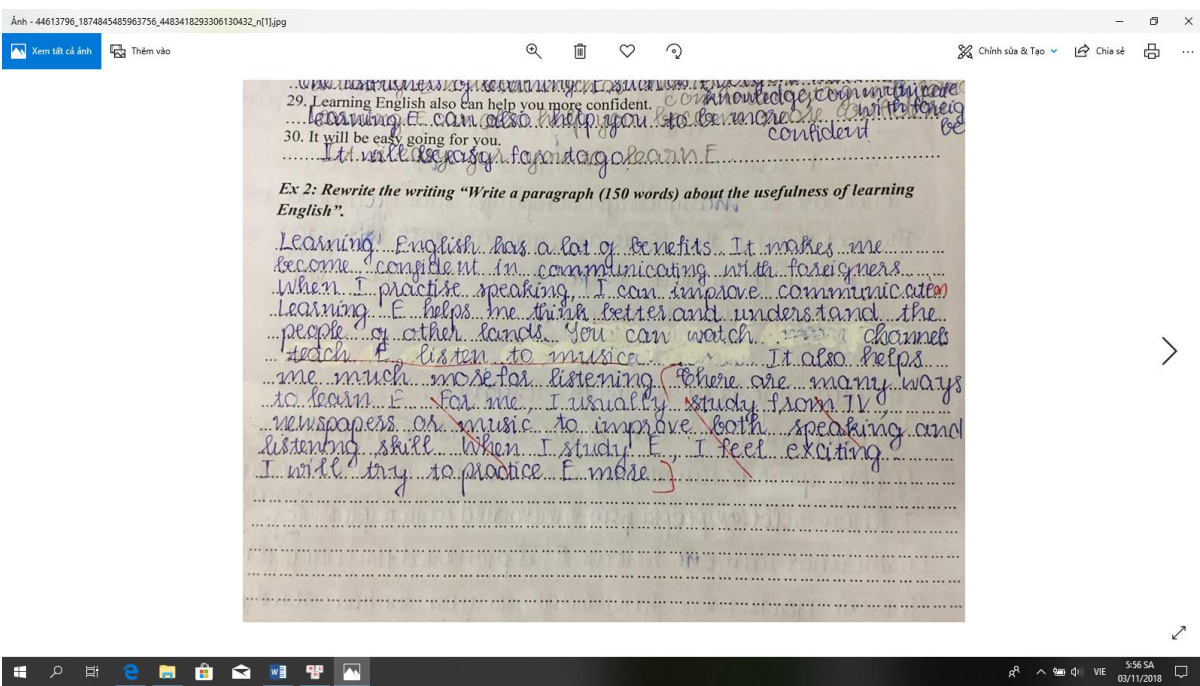 Ảnh - 44613796_1874845485963756_4483418293306130432_n[1].jpg
Xem tất cả ảnh Thêm vào Chỉnh sửa & Tạo Chia sẻ
29. Learning English also can help you more confident. knowledge, communicate
Learning E can also help you to be more confident with foreig
30. It will be easy going for you. be
It will be easy for to learn E
Ex 2: Rewrite the writing “Write a paragraph (150 words) about the usefulness of learning
English”.
Learning English has a lot of benefits. It makes me
become confident in communicating with foreigners
When I practise speaking, I can improve communication
Learning E helps me think better and understand the
people of other lands. You can watch channels
teach E, listen to musica It also helps
me much more for listening. [There are many ways
to learn E. For me, I usually study from TV,
newspapers or music to improve both speaking and
listening skill. When I study E, I feel exciting
I will try to practice E more.]
VIE
5:56 SA
03/11/2018